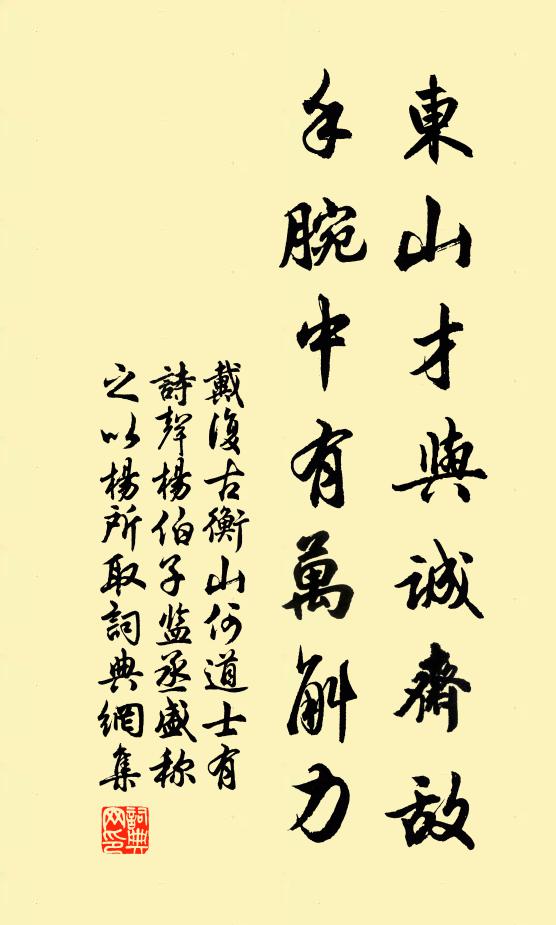 東山才與誠齋敵
手腕中有萬斛力
戴復古衡山何道士有
詩聲楊伯子监丞盛称
之以楊所取詞典網集
詞典網印